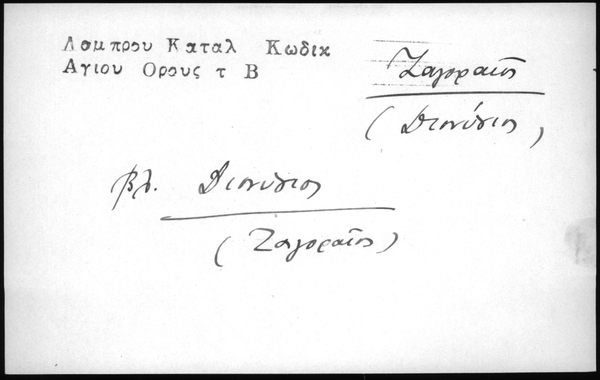 Λαμπρου Καταλ Κωδικ
Αγιου Ορους τ Β
Ζαγοραῖος
(Διονύσιος)
βλ. Διονύσιος
(Ζαγοραῖος)